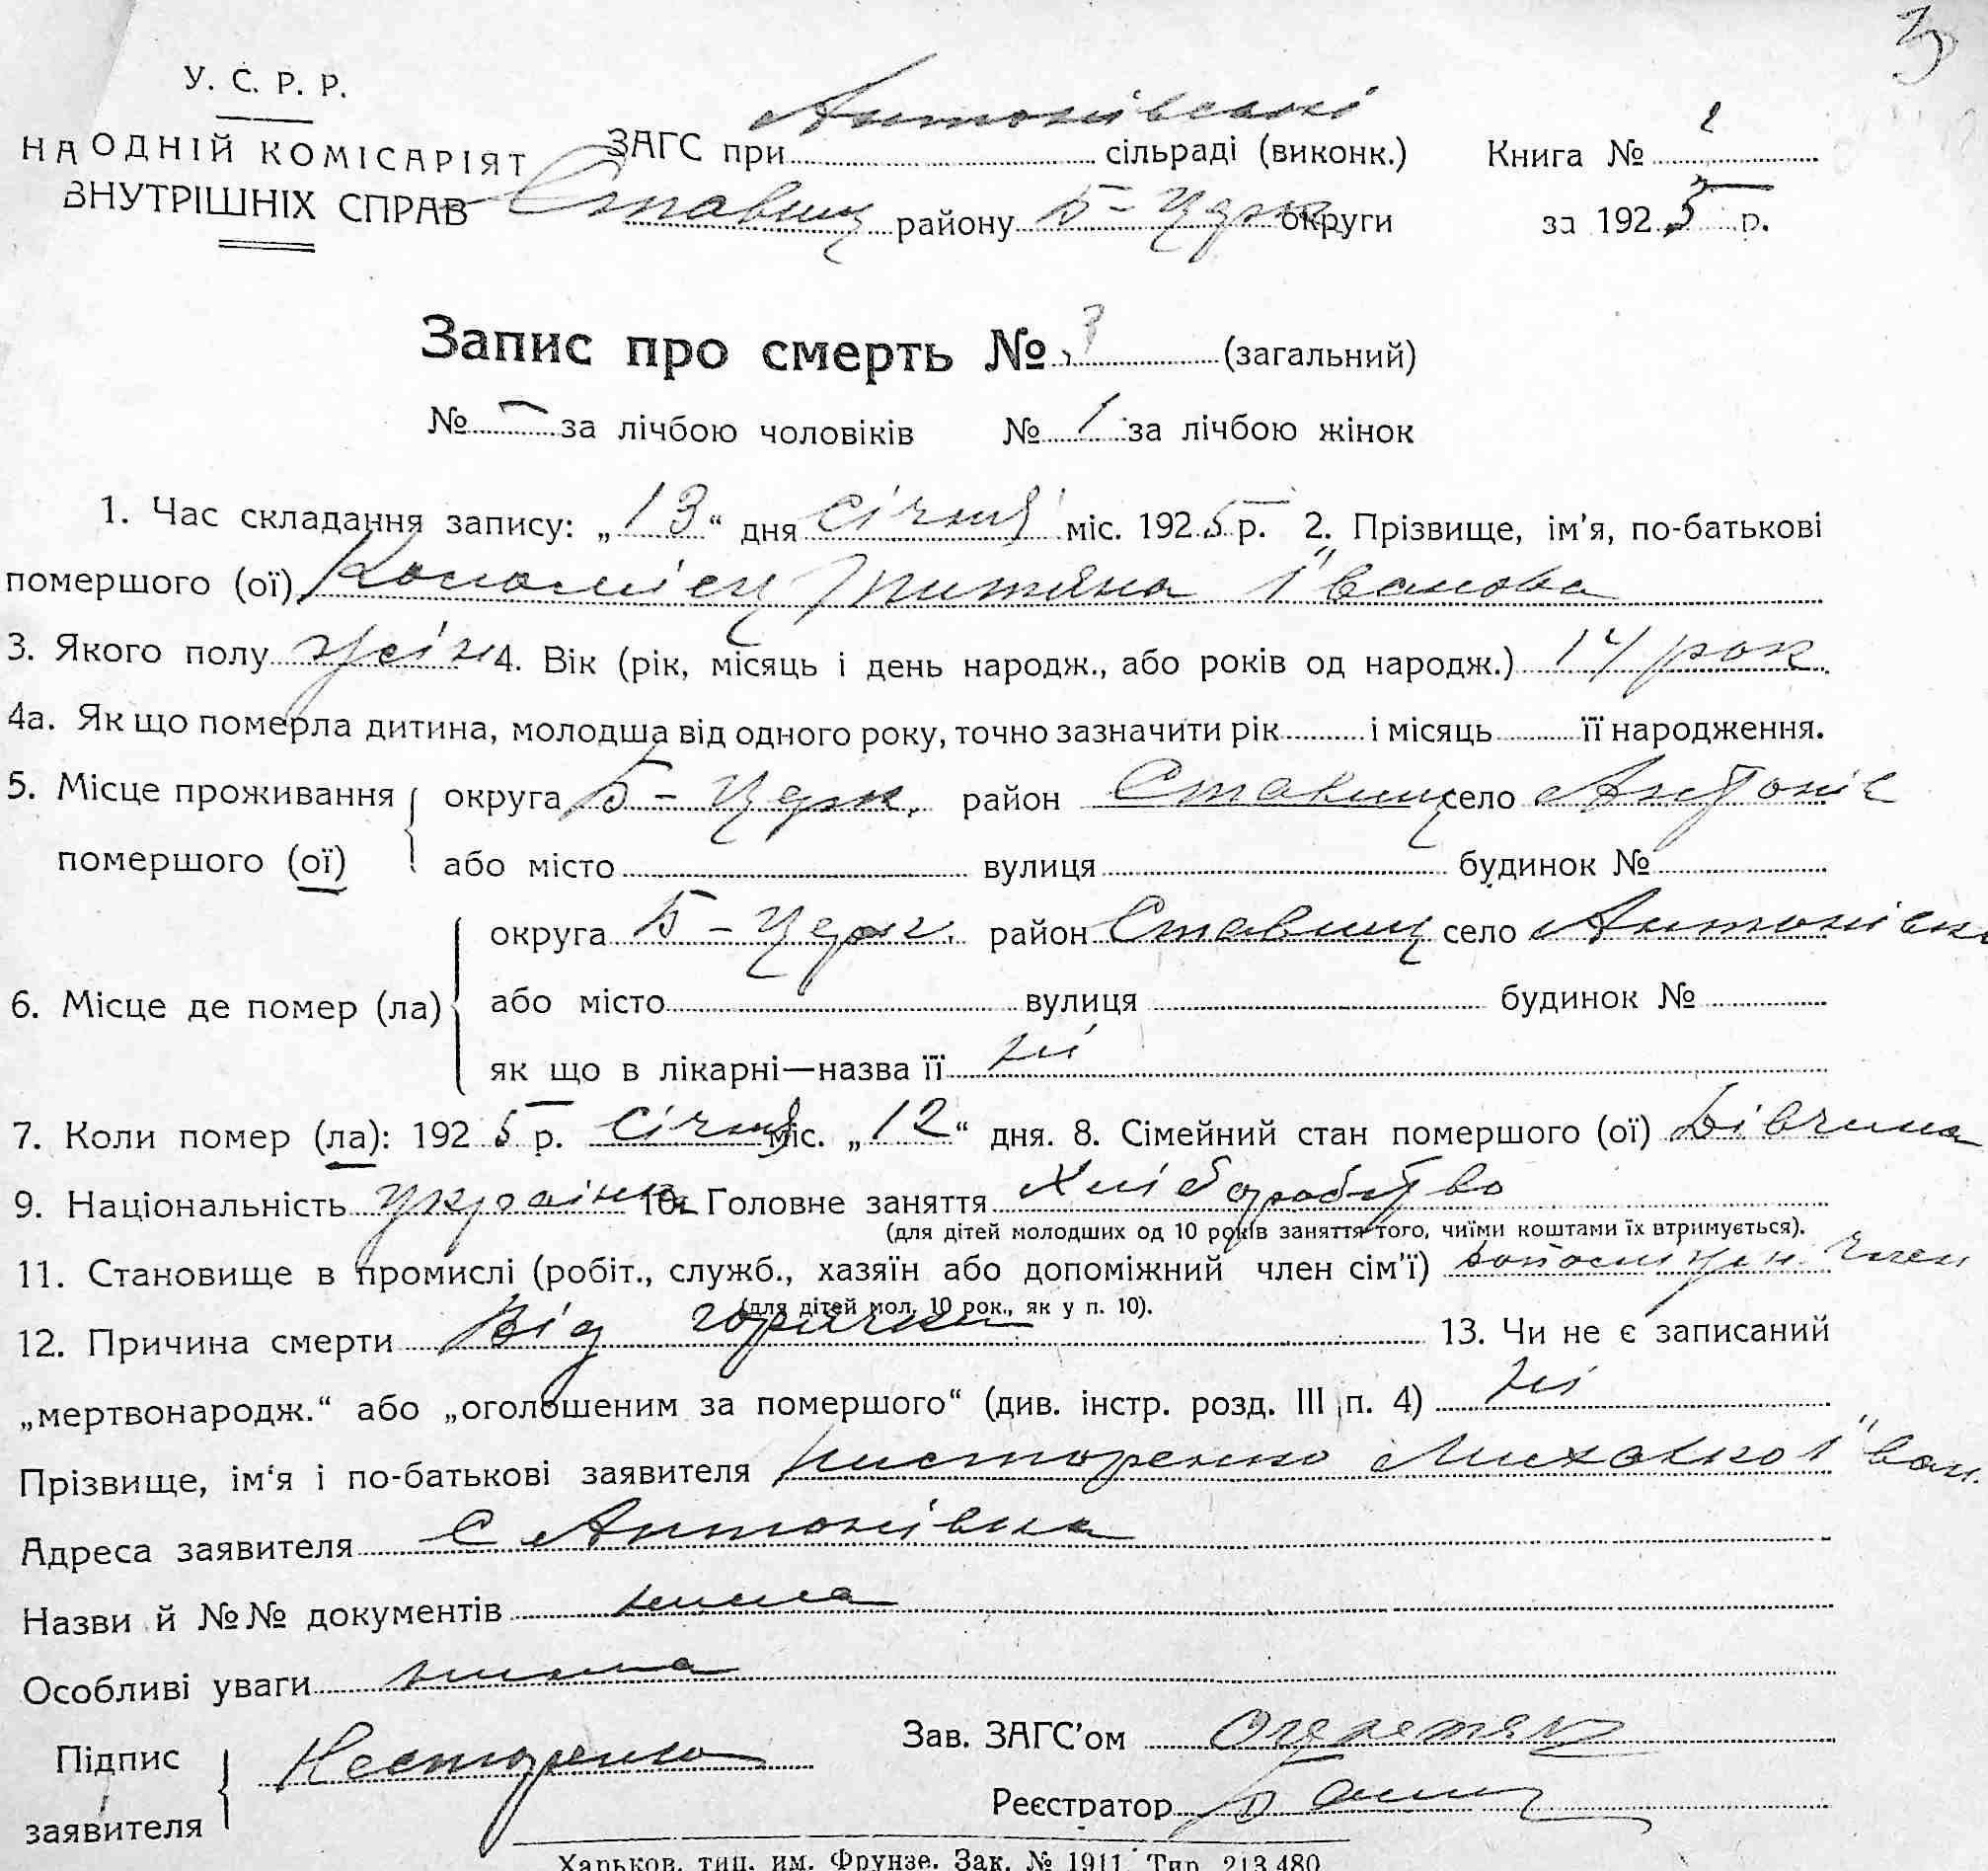 3
У. С. Р. Р.
НАОДНІЙ КОМІСАРІЯТ
ВНУТРІШНІХ СПРАВ
ЗАГС при Антонівські сільраді (виконк.) Книга № 2
Ставищ району Б-Церк округи за 1925 р.
Запис про смерть № 3 (загальний)
№ — за лічбою чоловіків № 1 за лічбою жінок
1. Час складання запису: „13“ дня січня міс. 1925 р. 2. Прізвище, ім’я, по-батькові
помершого (ої) Коломієц Титяна Іванова
3. Якого полу жін 4. Вік (рік, місяць і день народж., або років од народж.) 14 рок
4а. Як що померла дитина, молодша від одного року, точно зазначити рік і місяць її народження.
5. Місце проживання округа Б-Церк. район Ставищ село Антонів
помершого (ої) або місто вулиця будинок №
округа Б-Церк. район Ставищ село Антонівка
6. Місце де помер (ла) або місто вулиця будинок №
як що в лікарні—назва її ні
7. Коли помер (ла): 1925 р. січня міс. „12“ дня. 8. Сімейний стан помершого (ої) Дівчина
9. Національність українка 10. Головне заняття Хліборобство
(для дітей молодших од 10 років заняття того, чиїми коштами їх втримується).
11. Становище в промислі (робіт., служб., хазяїн або допоміжний член сім’ї) член
(для дітей мол. 10 рок., як у п. 10).
12. Причина смерти Від горячки 13. Чи не є записаний
„мертвонародж.“ або „оголошеним за помершого“ (див. інстр. розд. III п. 4) ні
Прізвище, ім‘я і по-батькові заявителя Нисторенко Михайло Іван.
Адреса заявителя С Антонівка
Назви й №№ документів нима
Особливі уваги нима
Підпис заявителя Несторенко
Зав. ЗАГС’ом Очеретяк
Реєстратор
Харьков, тип. им. Фрунзе. Зак. № 1911. Тир. 213.480